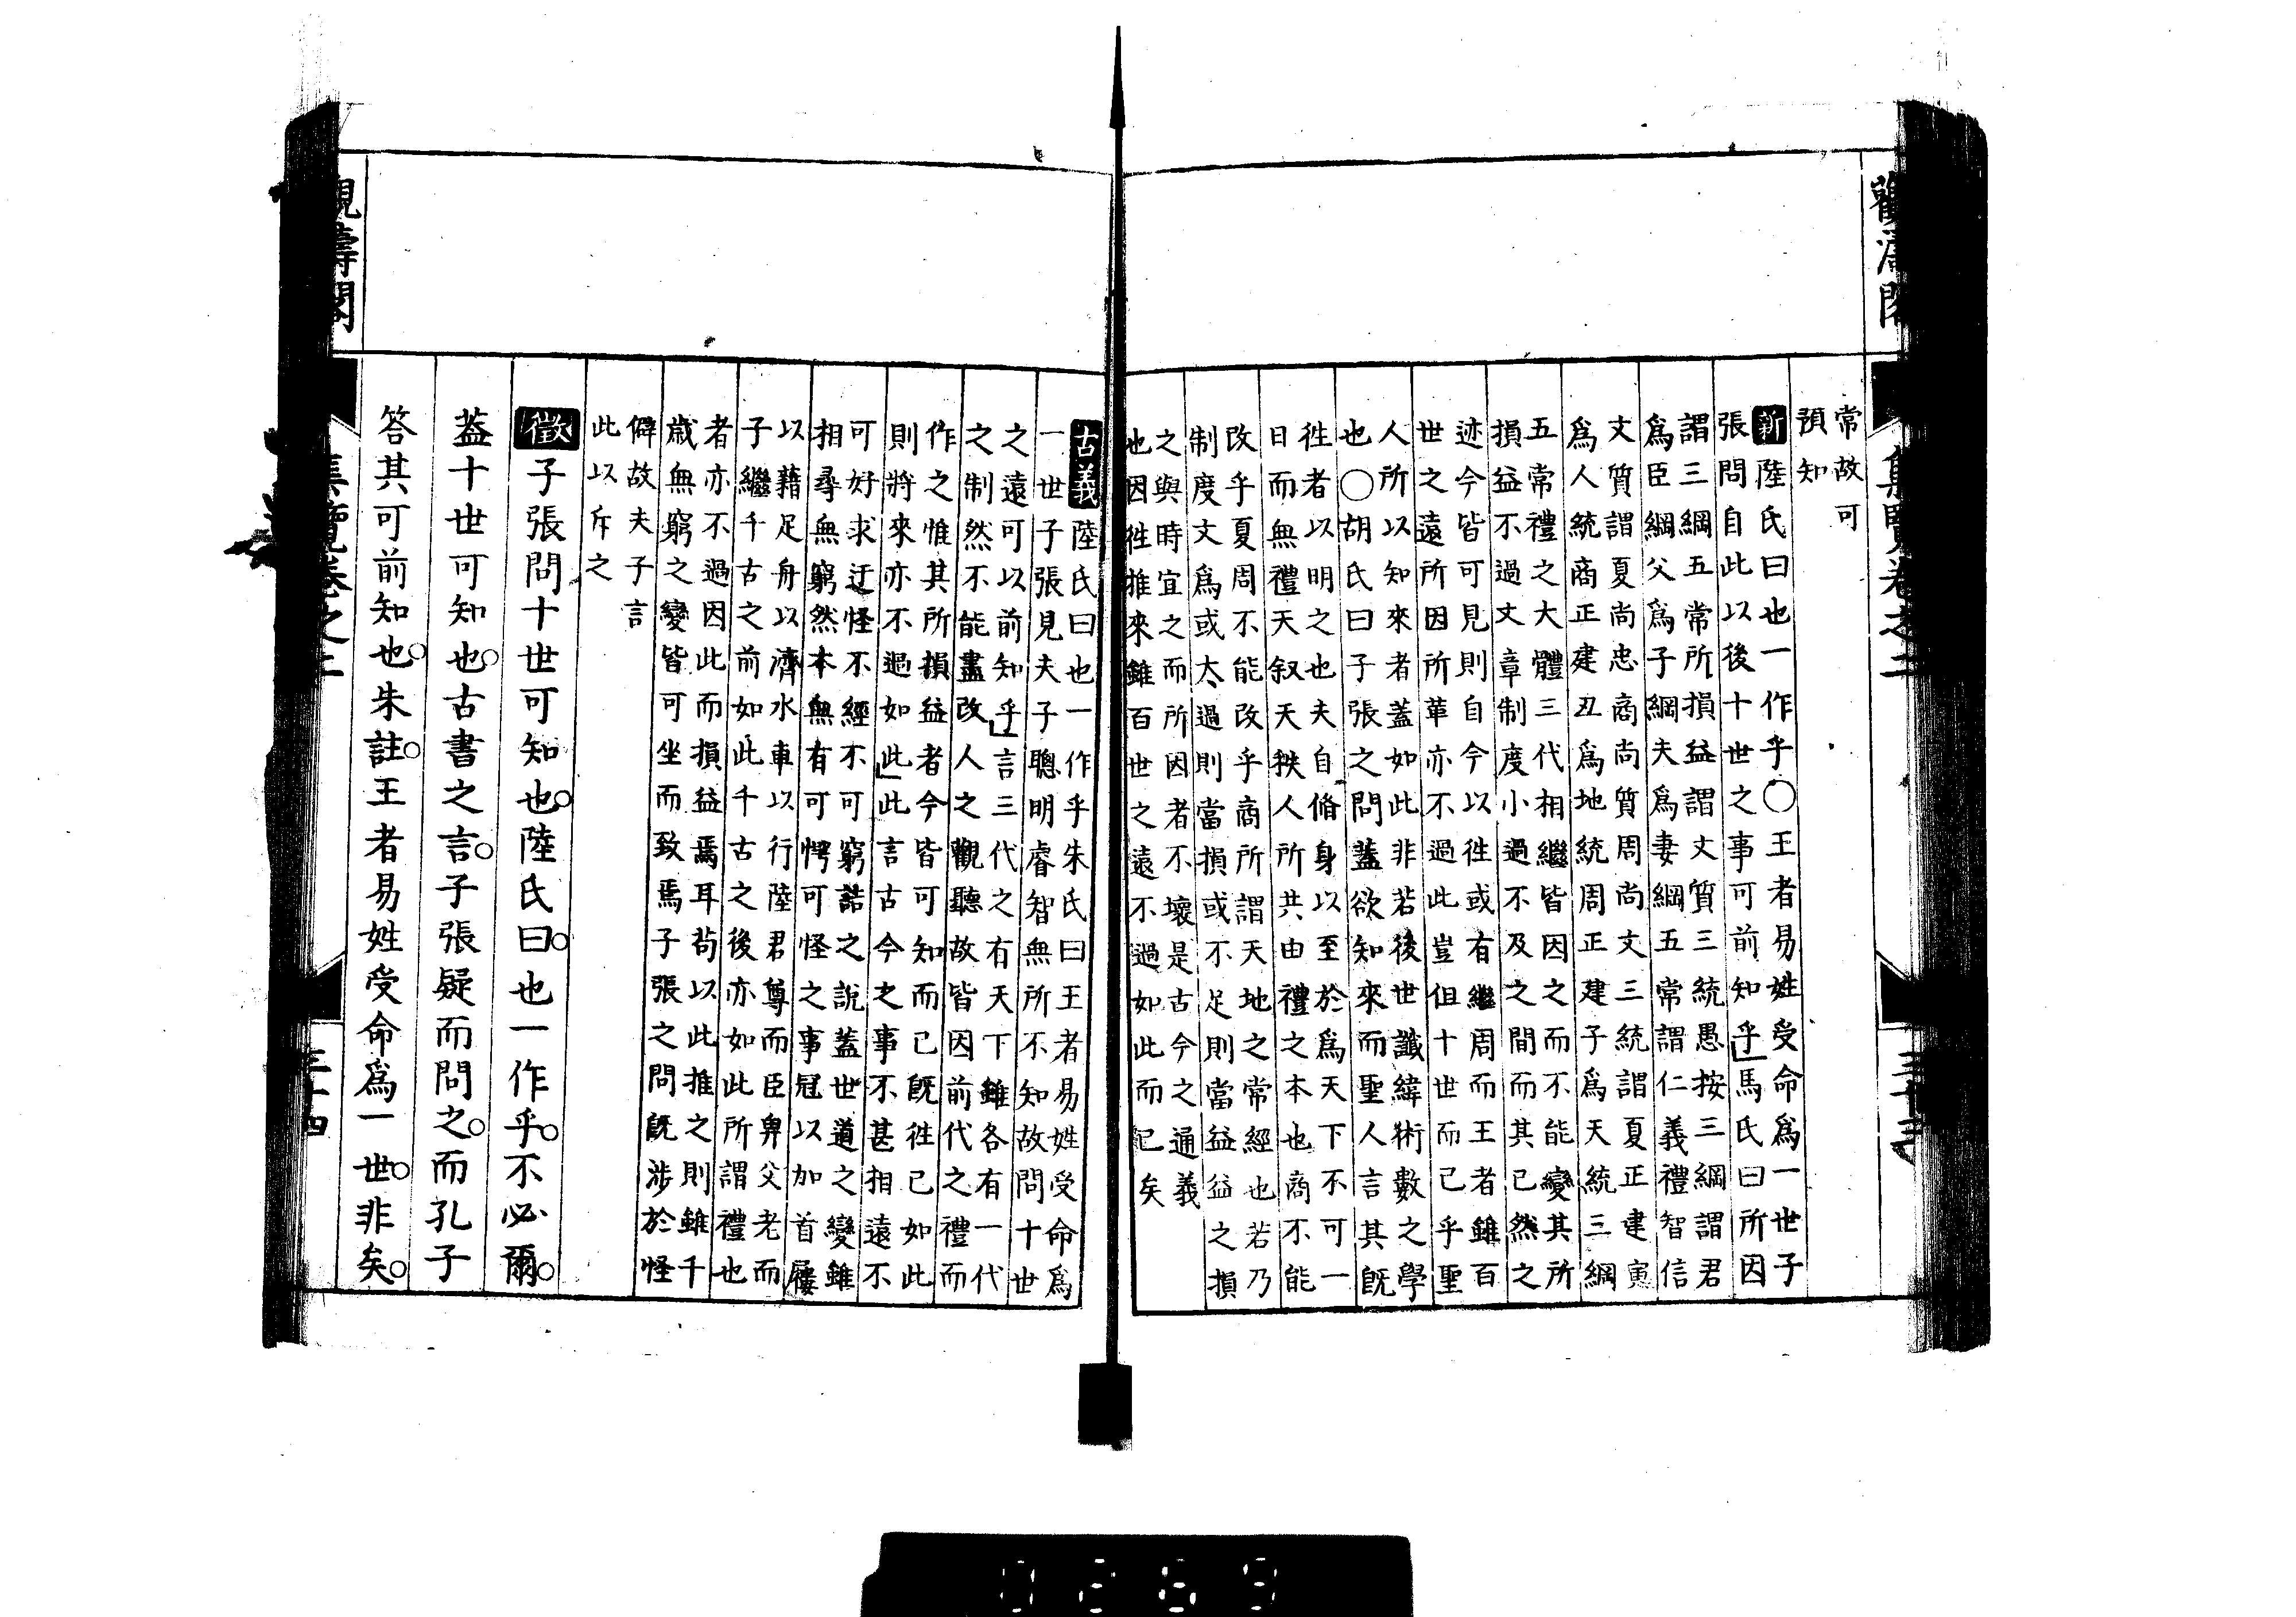 觀濤閣
集覽卷之二
三十三
常故可
預知
新陸氏曰也一作乎○王者易姓受命爲一世子
張問自此以後十世之事可前知乎馬氏曰所因
謂三綱五常所損益謂文質三統愚按三綱謂君
爲臣綱父爲子綱夫爲妻綱五常謂仁義禮智信
文質謂夏尚忠商尚質周尚文三統謂夏正建寅
爲人統商正建丑爲地統周正建子爲天統三綱
五常禮之大體三代相繼皆因之而不能變其所
損益不過文章制度小過不及之間而其已然之
迹今皆可見則自今以徃或有繼周而王者雖百
世之遠所因所革亦不過此豈但十世而已乎聖
人所以知來者蓋如此非若後世讖緯術數之學
也○胡氏曰子張之問蓋欲知來而聖人言其既
徃者以明之也夫自脩身以至於爲天下不可一
日而無禮天叙天秩人所共由禮之本也商不能
改乎夏周不能改乎商所謂天地之常經也若乃
制度文爲或太過則當損或不足則當益益之損
之與時宜之而所因者不壞是古今之通義
也因徃推來雖百世之遠不過如此而已矣
古義陸氏曰也一作乎朱氏曰王者易姓受命爲
一世子張見夫子聰明睿智無所不知故問十世
之遠可以前知乎言三代之有天下雖各有一代
之制然不能盡改人之觀聽故皆因前代之禮而
作之惟其所損益者今皆可知而已既徃已如此
則將來亦不過如此此言古今之事不甚相遠不
可好求迂怪不經不可窮詰之說蓋世道之變雖
相尋無窮然本無有可愕可怪之事冠以加首屨
以藉足舟以濟水車以行陸君尊而臣卑父老而
子繼千古之前如此千古之後亦如此所謂禮也
者亦不過因此而損益焉耳苟以此推之則雖千
歲無窮之變皆可坐而致焉子張之問既涉於怪
僻故夫子言
此以斥之
徵子張問十世可知也○陸氏曰○也一作乎○不必爾○
蓋十世可知也○古書之言○子張疑而問之○而孔子
答其可前知也○朱註○王者易姓受命爲一世○非矣○
觀濤閣
集覽卷之二
三十四
0269